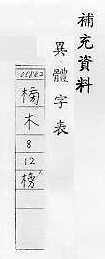 補充資料
異體字表
木
8
12
榜